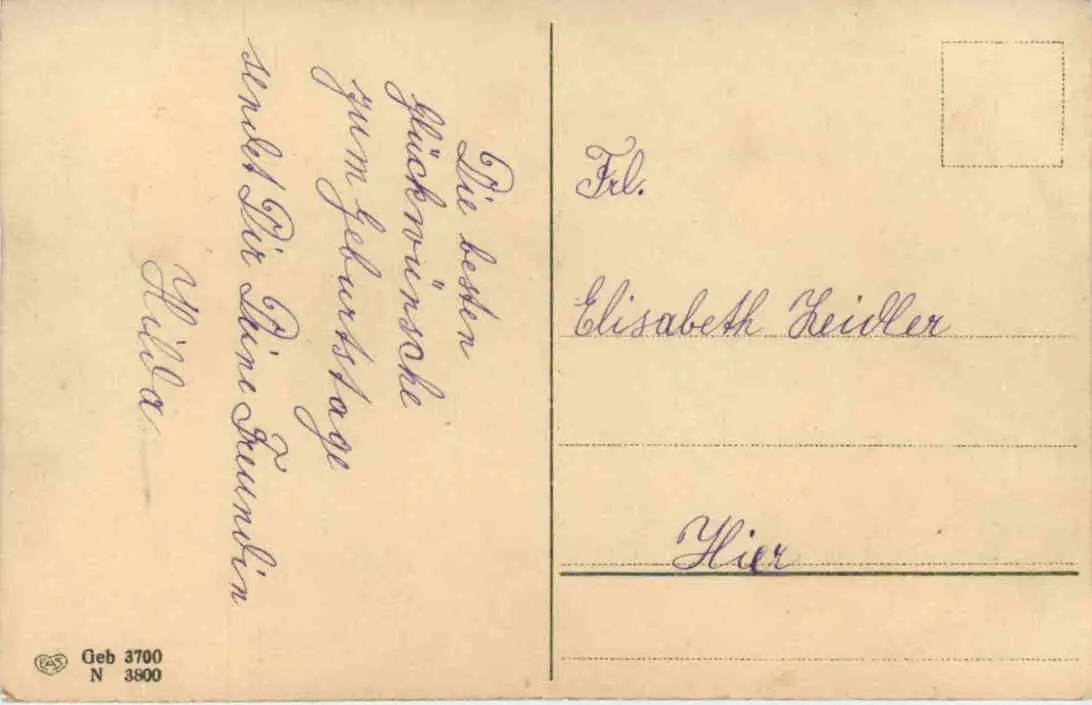 Die besten
Glückwünsche
zum Geburtstage
sendet Dir Deine Freundin
Hilda
Frl.
Elisabeth Zeidler
Hier
EAS
Geb 3700
N 3800